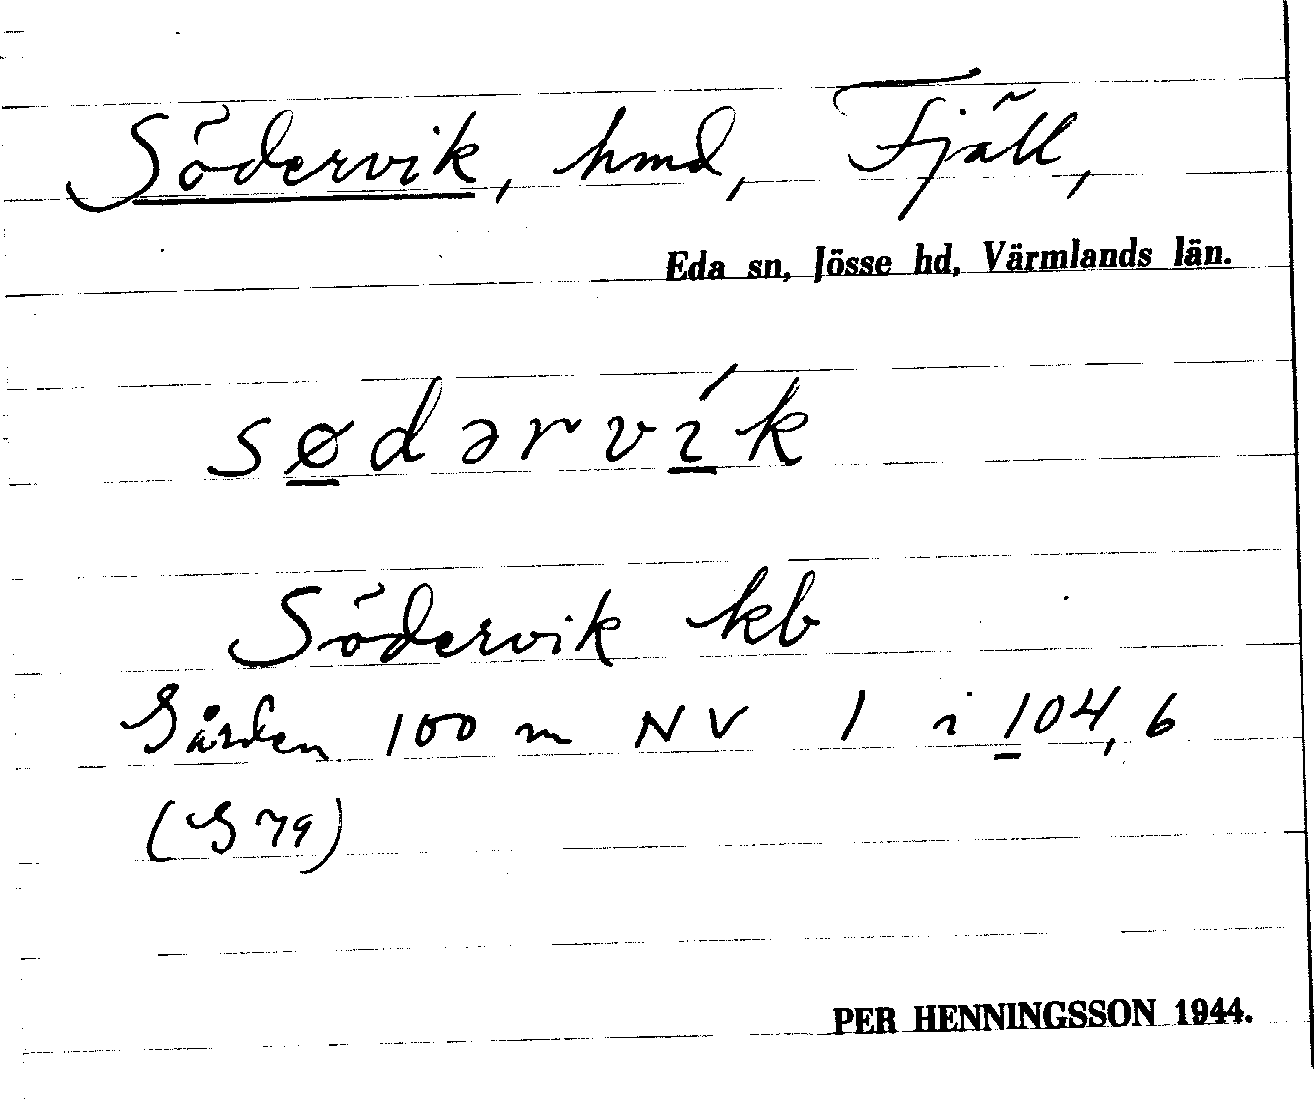 Södervik, hmd, Fjäll,
Eda sn, Jösse hd, Värmlands län.
sødərvík
Södervik kb
Gården 100 m NV 1 i 104,6
(G 79)
PER HENNINGSSON 1944.